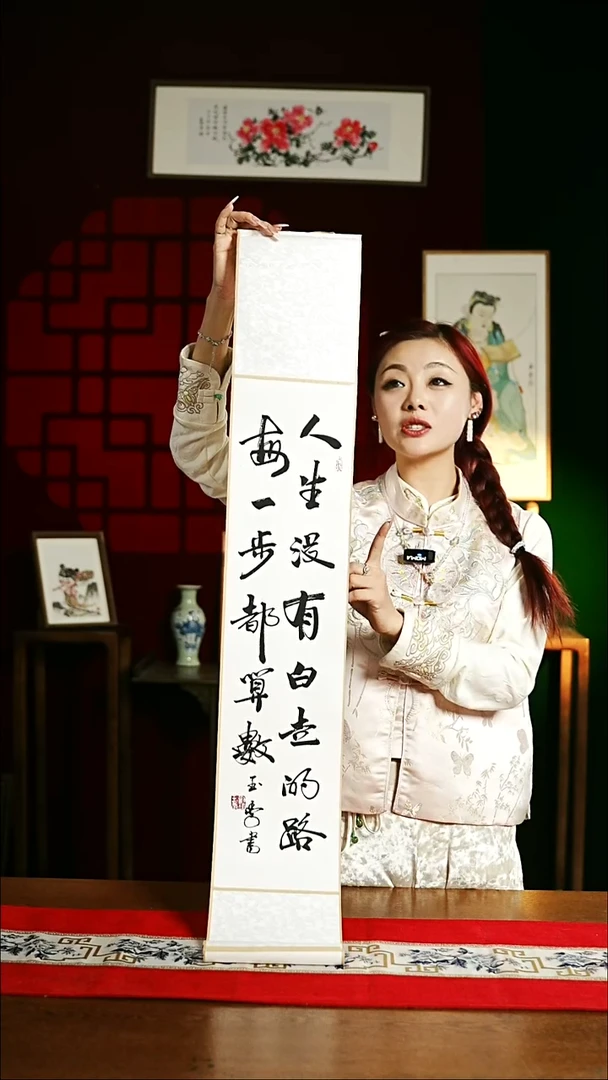 人生没有白走的路
每一步都算数
玉秀書